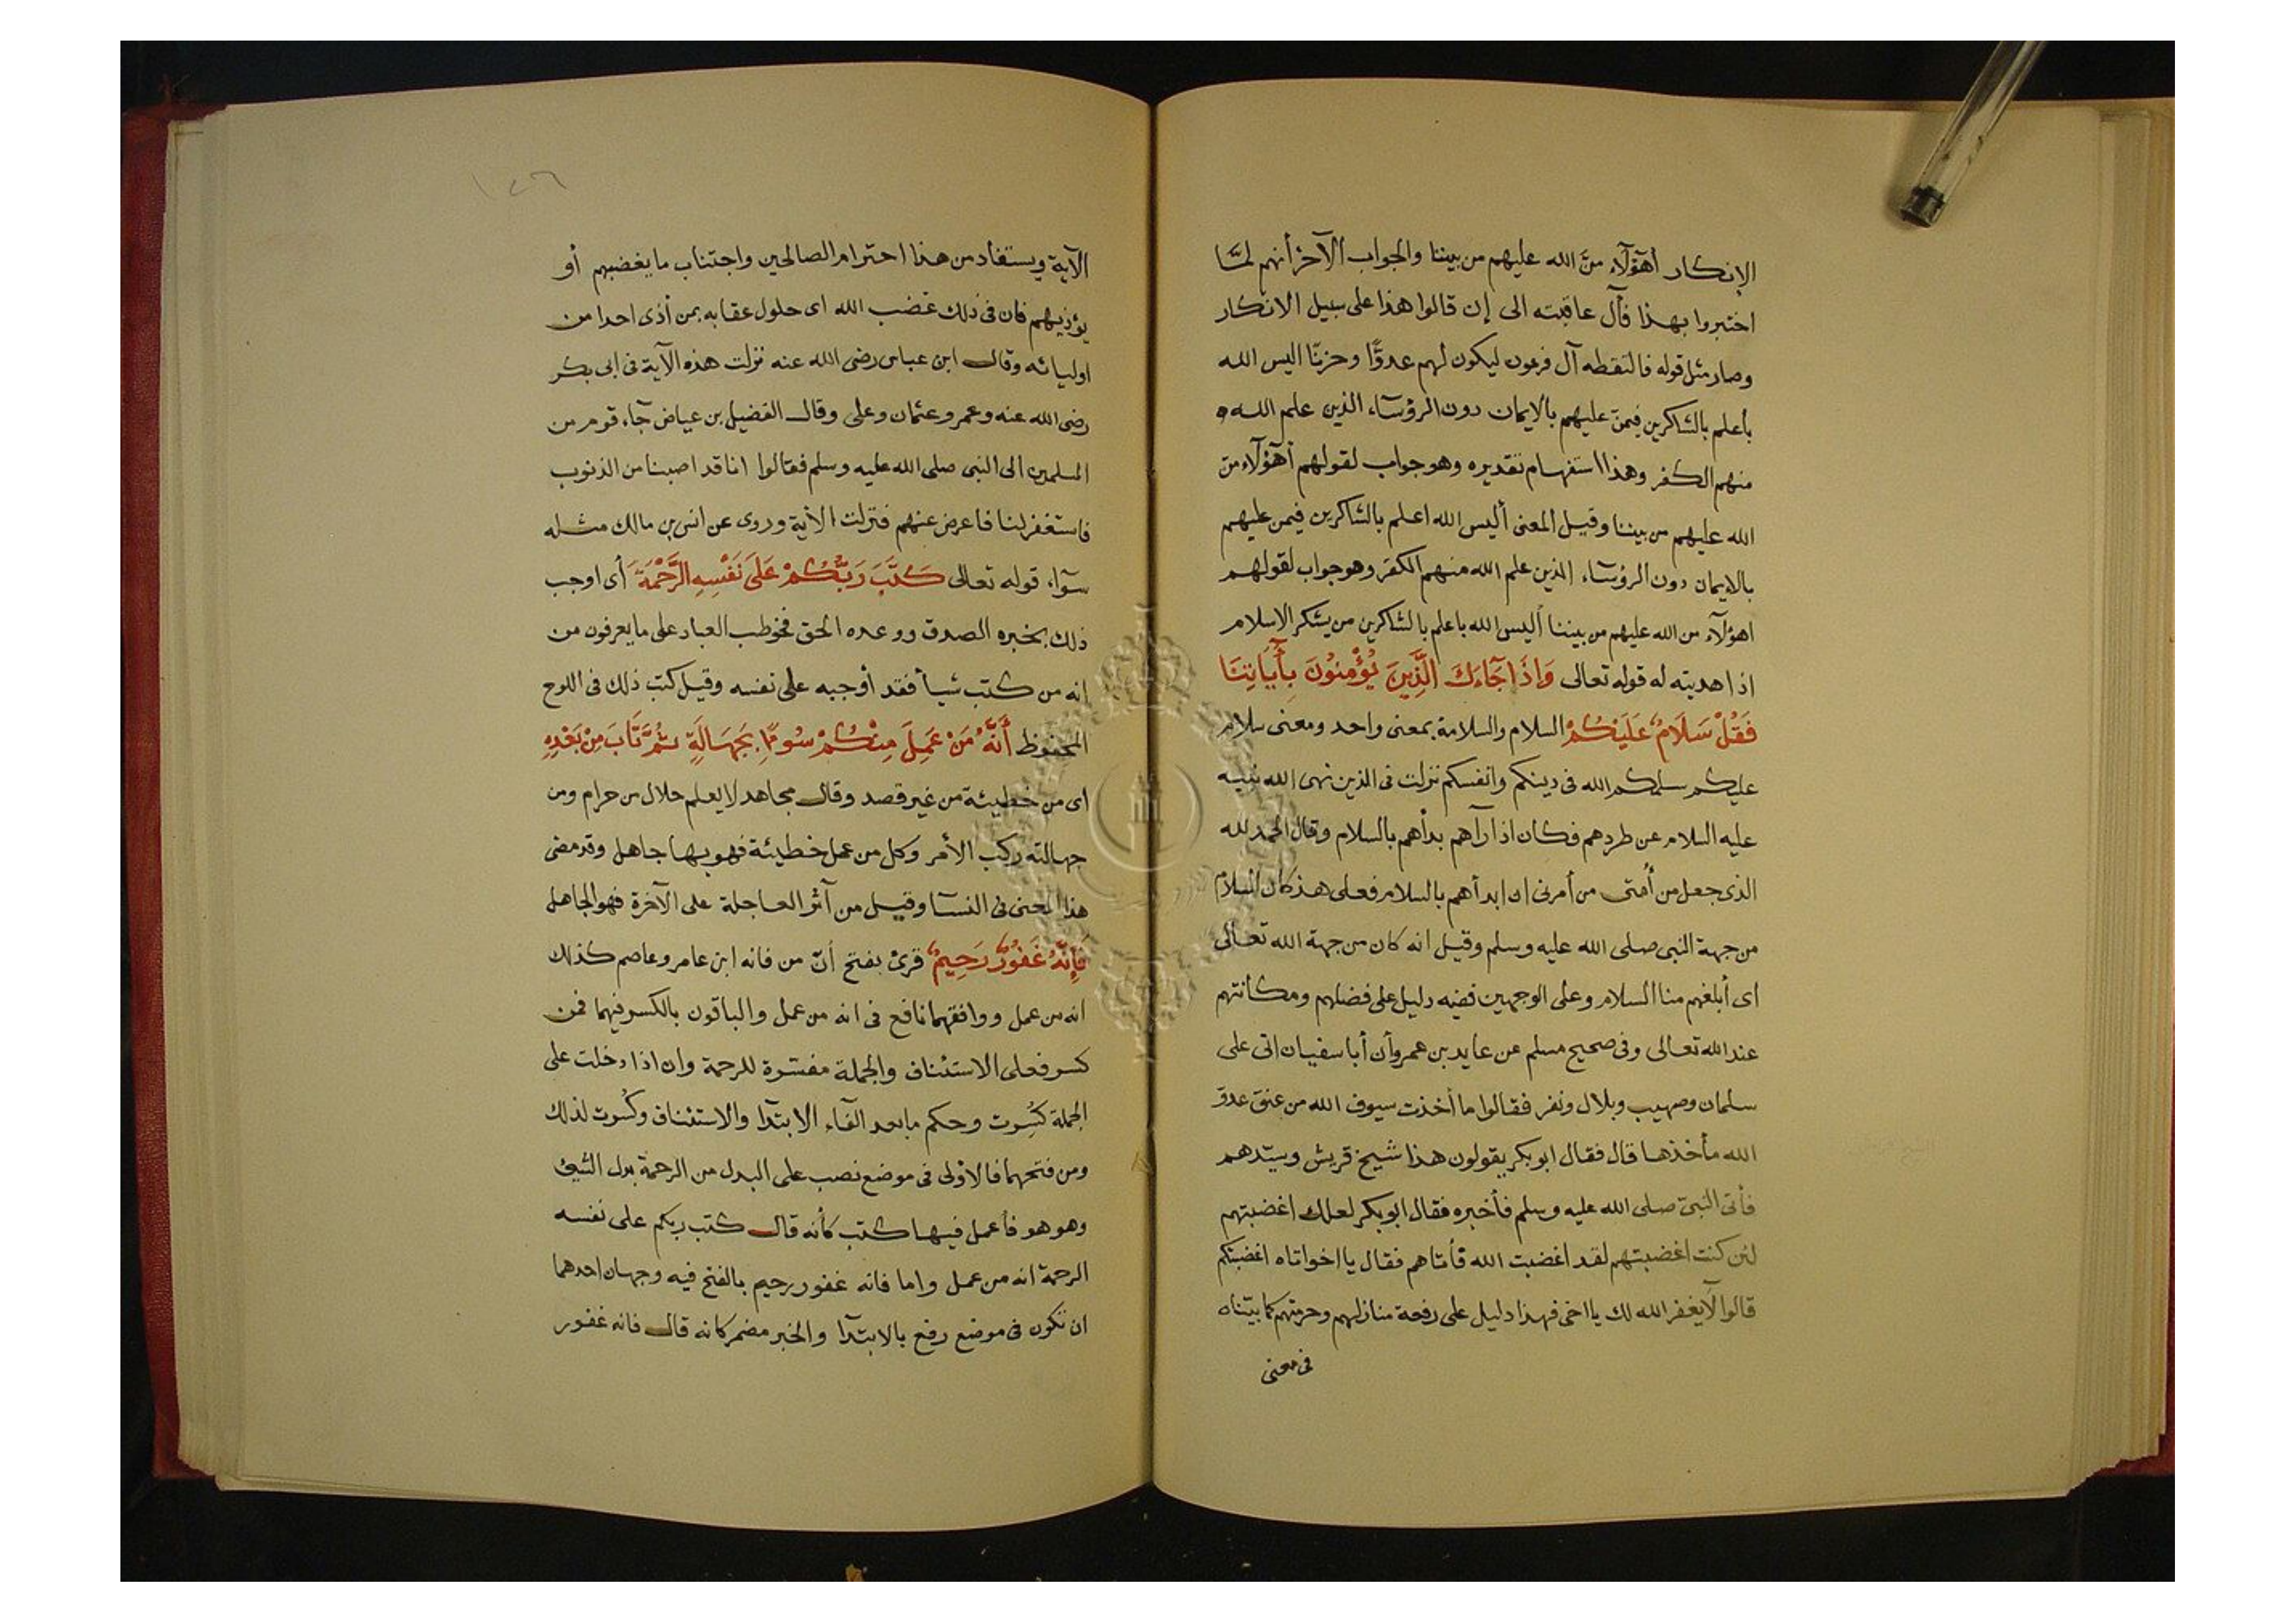 الإنكار أهؤلآء منَّ الله عليهم من بيننا والجواب الآخر أنهم لمَّا
اختبروا بهذا فآل عاقبته الى إن قالوا هذا على سبيل الانكار
وصار مثل قوله فالتقطه آل فرعون ليكون لهم عدوًّا وحزنًا اليس الله
بأعلم بالشاكرين فيمنّ عليهم بالايمان دون الرؤسآء الذين علم الله
منهم الكفر وهذا استفهام تقديره وهو جواب لقولهم أهؤلآء منّ
الله عليهم من بيننا وقيل المعنى أليس الله اعلم بالشاكرين فيمن عليهم
بالايمان دون الرؤسآء الذين علم الله منهم الكفر وهو جواب لقولهم
اهؤلآء من الله عليهم من بيننا أليس الله باعلم بالشاكرين من يشكر الاسلام
اذا هديته له قوله تعالى وَإِذَا جَآءَكَ الَّذِينَ يُؤْمِنُونَ بِأَيَاتِنَا
فَقُلْ سَلَامٌ عَلَيْكُمْ السلام والسلامة بمعنى واحد ومعنى سلام
عليكم سلمكم الله فى دينكم وانفسكم نزلت فى الذين نهى الله نبيه
عليه السلام عن طردهم فكان اذا رآهم بدأهم بالسلام وقال الحمد لله
الذى جعل من أمتى من أمرنى ان ابدأهم بالسلام فعلى هذ كان السلام
من جهة النبى صلى الله عليه وسلم وقيل انه كان من جهة الله تعالى
اى أبلغهم منا السلام وعلى الوجهين ففيه دليل على فضلهم ومكانتهم
عند الله تعالى وفى صحيح مسلم عن عايد بن عمرو أن أبا سفيان اتى على
سلمان وصهيب وبلال ونفر فقالوا ما أخذت سيوف الله من عنق عدوّ
الله مأخذها قال فقال ابو بكر يقولون هذا شيخ قريش وسيّدهم
فأتى النبىّ صلى الله عليه وسلم فأخبره فقال ابو بكر لعلك اغضبتهم
لئن كنت اغضبتهم لقد اغضبت الله فأتاهم فقال يا اخواتاه اغضبتكم
قالوا لا يغفر الله لك يا اخى فهذا دليل على رفعة منازلهم وحرمتهم كما بيّناه
فى معنى
١٤٦
الآية ويستفاد من هذا احترام الصالحين واجتناب ما يغضبهم أو
يؤذيهم فان فى ذلك غضب الله اى حلول عقابه بمن أذى احدا من
اوليائه وقال ابن عباس رضى الله عنه نزلت هذه الآية فى ابى بكر
رضى الله عنه وعمر وعثمان وعلى وقال الفضيل بن عياض جآء قوم من
المسلمين الى النبى صلى الله عليه وسلم فقالوا انا قد اصبنا من الذنوب
فاستغفر لنا فاعرض عنهم فنزلت الأية وروى عن انس بن مالك مثله
سوآء قوله تعالى كَتَبَ رَبُّكُمْ عَلَى نَفْسِهِ الرَّحْمَةَ أى اوجب
ذلك بخبره الصدق ووعده الحق فخوطب العباد على ما يعرفون من
انه من كتب شيأ فقد أوجبه على نفسه وقيل كتب ذلك فى اللوح
المحفوظ أَنَّهُ مَنْ عَمِلَ مِنْكُمْ سُوءًا بِجَهَالَةٍ ثُمَّ تَابَ مِنْ بَعْدِهِ
اى من خطيئة من غير قصد وقال مجاهد لا يعلم حلال من حرام ومن
جهالته ركب الأمر وكل من عمل خطيئة فهو بها جاهل وقد مضى
هذا المعنى فى النسآ وقيل من آثر العاجلة على الآخرة فهو الجاهل
فَإِنَّهُ غَفُورٌ رَحِيمٌ قرئ بفتح أنّ من فانه ابن عامر وعاصم كذلك
انه من عمل ووافقهما نافع فى انه من عمل والباقون بالكسر فيهما فمن
كسر فعلى الاستئناف والجملة مفسّرة للرحمة وان اذا دخلت على
الجملة كُسِرت وحكم ما بعد الفآء الابتدآ والاستئناف وكُسرت لذلك
ومن فتحهما فالاولى فى موضع نصب على البدل من الرحمة بدل الشئ
وهو هو فأعمل فيها كتب كأنه قال كتب ربكم على نفسه
الرحمة انه من عمل واما فانه غفور رحيم بالفتح فيه وجهان احدهما
ان تكون فى موضع رفع بالابتدآ والخبر مضمر كانه قال فانه غفور